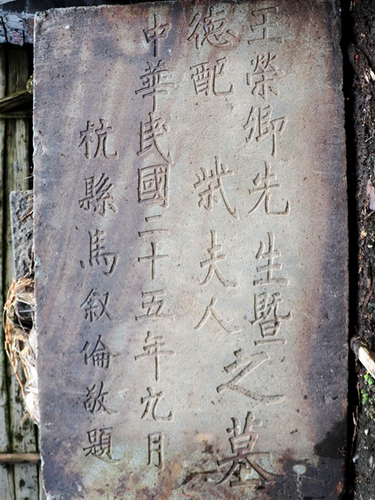 王榮卿先生暨
德配 夫人
之墓
中華民國二十五年九月
杭縣馬叙倫敬題